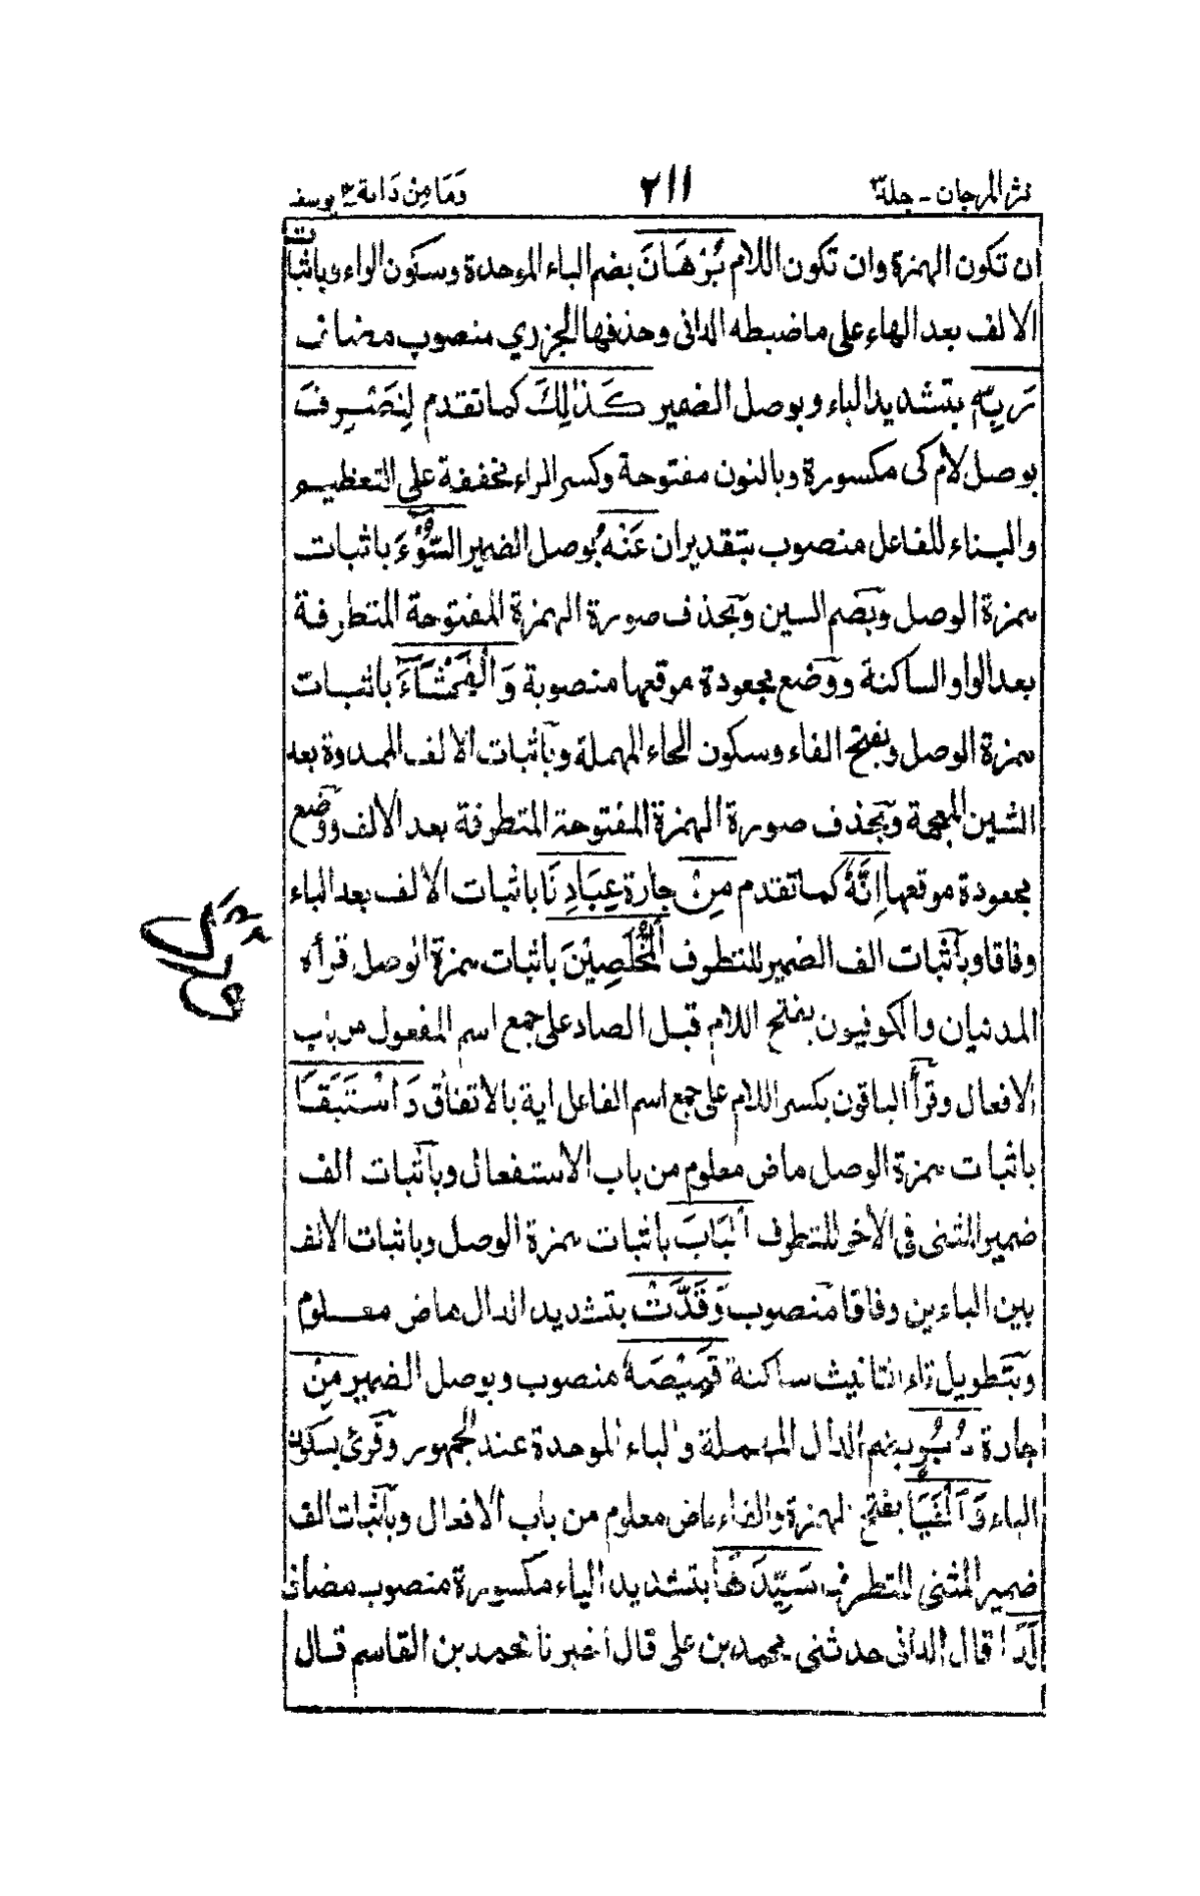 نثر المرجان - جلد٣ ٢١١ وَمَا مِنْ دَابة ١٢ يوسف
ان تكون الهمزة وان تكون اللام بُرْهَانَ بضم الباء الموحدة وسكون الراء وباثبات
الالف بعد الهاء على ما ضبطه الدانى وحذفها الجزري منصوب مضاف
رَبِّهٖ بتشديد الباء وبوصل الضمير كَذٰلِكَ كما تقدم لِنَصْرِفَ
بوصل لام كى مكسورة وبالنون مفتوحة وكسر الراء مخففة على التعظيم
والبناء للفاعل منصوب بتقدير ان عَنْهُ بوصل الضمير السُّوْٓءَ باثبات
همزة الوصل وبضم السين وبحذف صورة الهمزة المفتوحة المتطرفة
بعد الواو الساكنة ووضع مجعودة موقعها منصوبة وَالْفَحْشَآءَ باثبات
همزة الوصل وبفتح الفاء وسكون الحاء المهملة وباثبات الالف الممدودة بعد
الشين المعجمة وبحذف صورة الهمزة المفتوحة المتطرفة بعد الالف ووضع
مجعودة موقعها اِنَّهٗ كما تقدم مِنْ جارة عِبَادِنَا باثبات الالف بعد الباء
وفاقا وباثبات الف الضمير للتطرف الْمُخْلَصِيْنَ باثبات همزة الوصل قرأه
المدنيان والكوفيون بفتح اللام قبل الصاد على جمع اسم المفعول من باب
الافعال وقرأ الباقون بكسر اللام على جمع اسم الفاعل اية بالاتفاق وَاسْتَبَقَا
باثبات همزة الوصل ماض معلوم من باب الاستفعال وباثبات الف
ضمير المثنى فى الاخر للتطرف الْبَابَ باثبات همزة الوصل وباثبات الالف
بين الباءين وفاقا منصوب وَقَدَّتْ بتشديد الدال ماض معلوم
وبتطويل تاء التانيث ساكنة قَمِيْصَهٗ منصوب وبوصل الضمير مِنْ
جارة دُبُرٍ بضم الدال المهملة والباء الموحدة عند الجمهور وقرئ بسكون
الباء وَاَلْفَيَا بفتح الهمزة والفاء ماض معلوم من باب الافعال وباثبات الف
ضمير المثنى للتطرف سَيِّدَهَا بتشديد الياء مكسورة منصوب مضاف
لَدَا قال الدانى حدثنى محمد بن على قال اخبرنا محمد بن القاسم قال